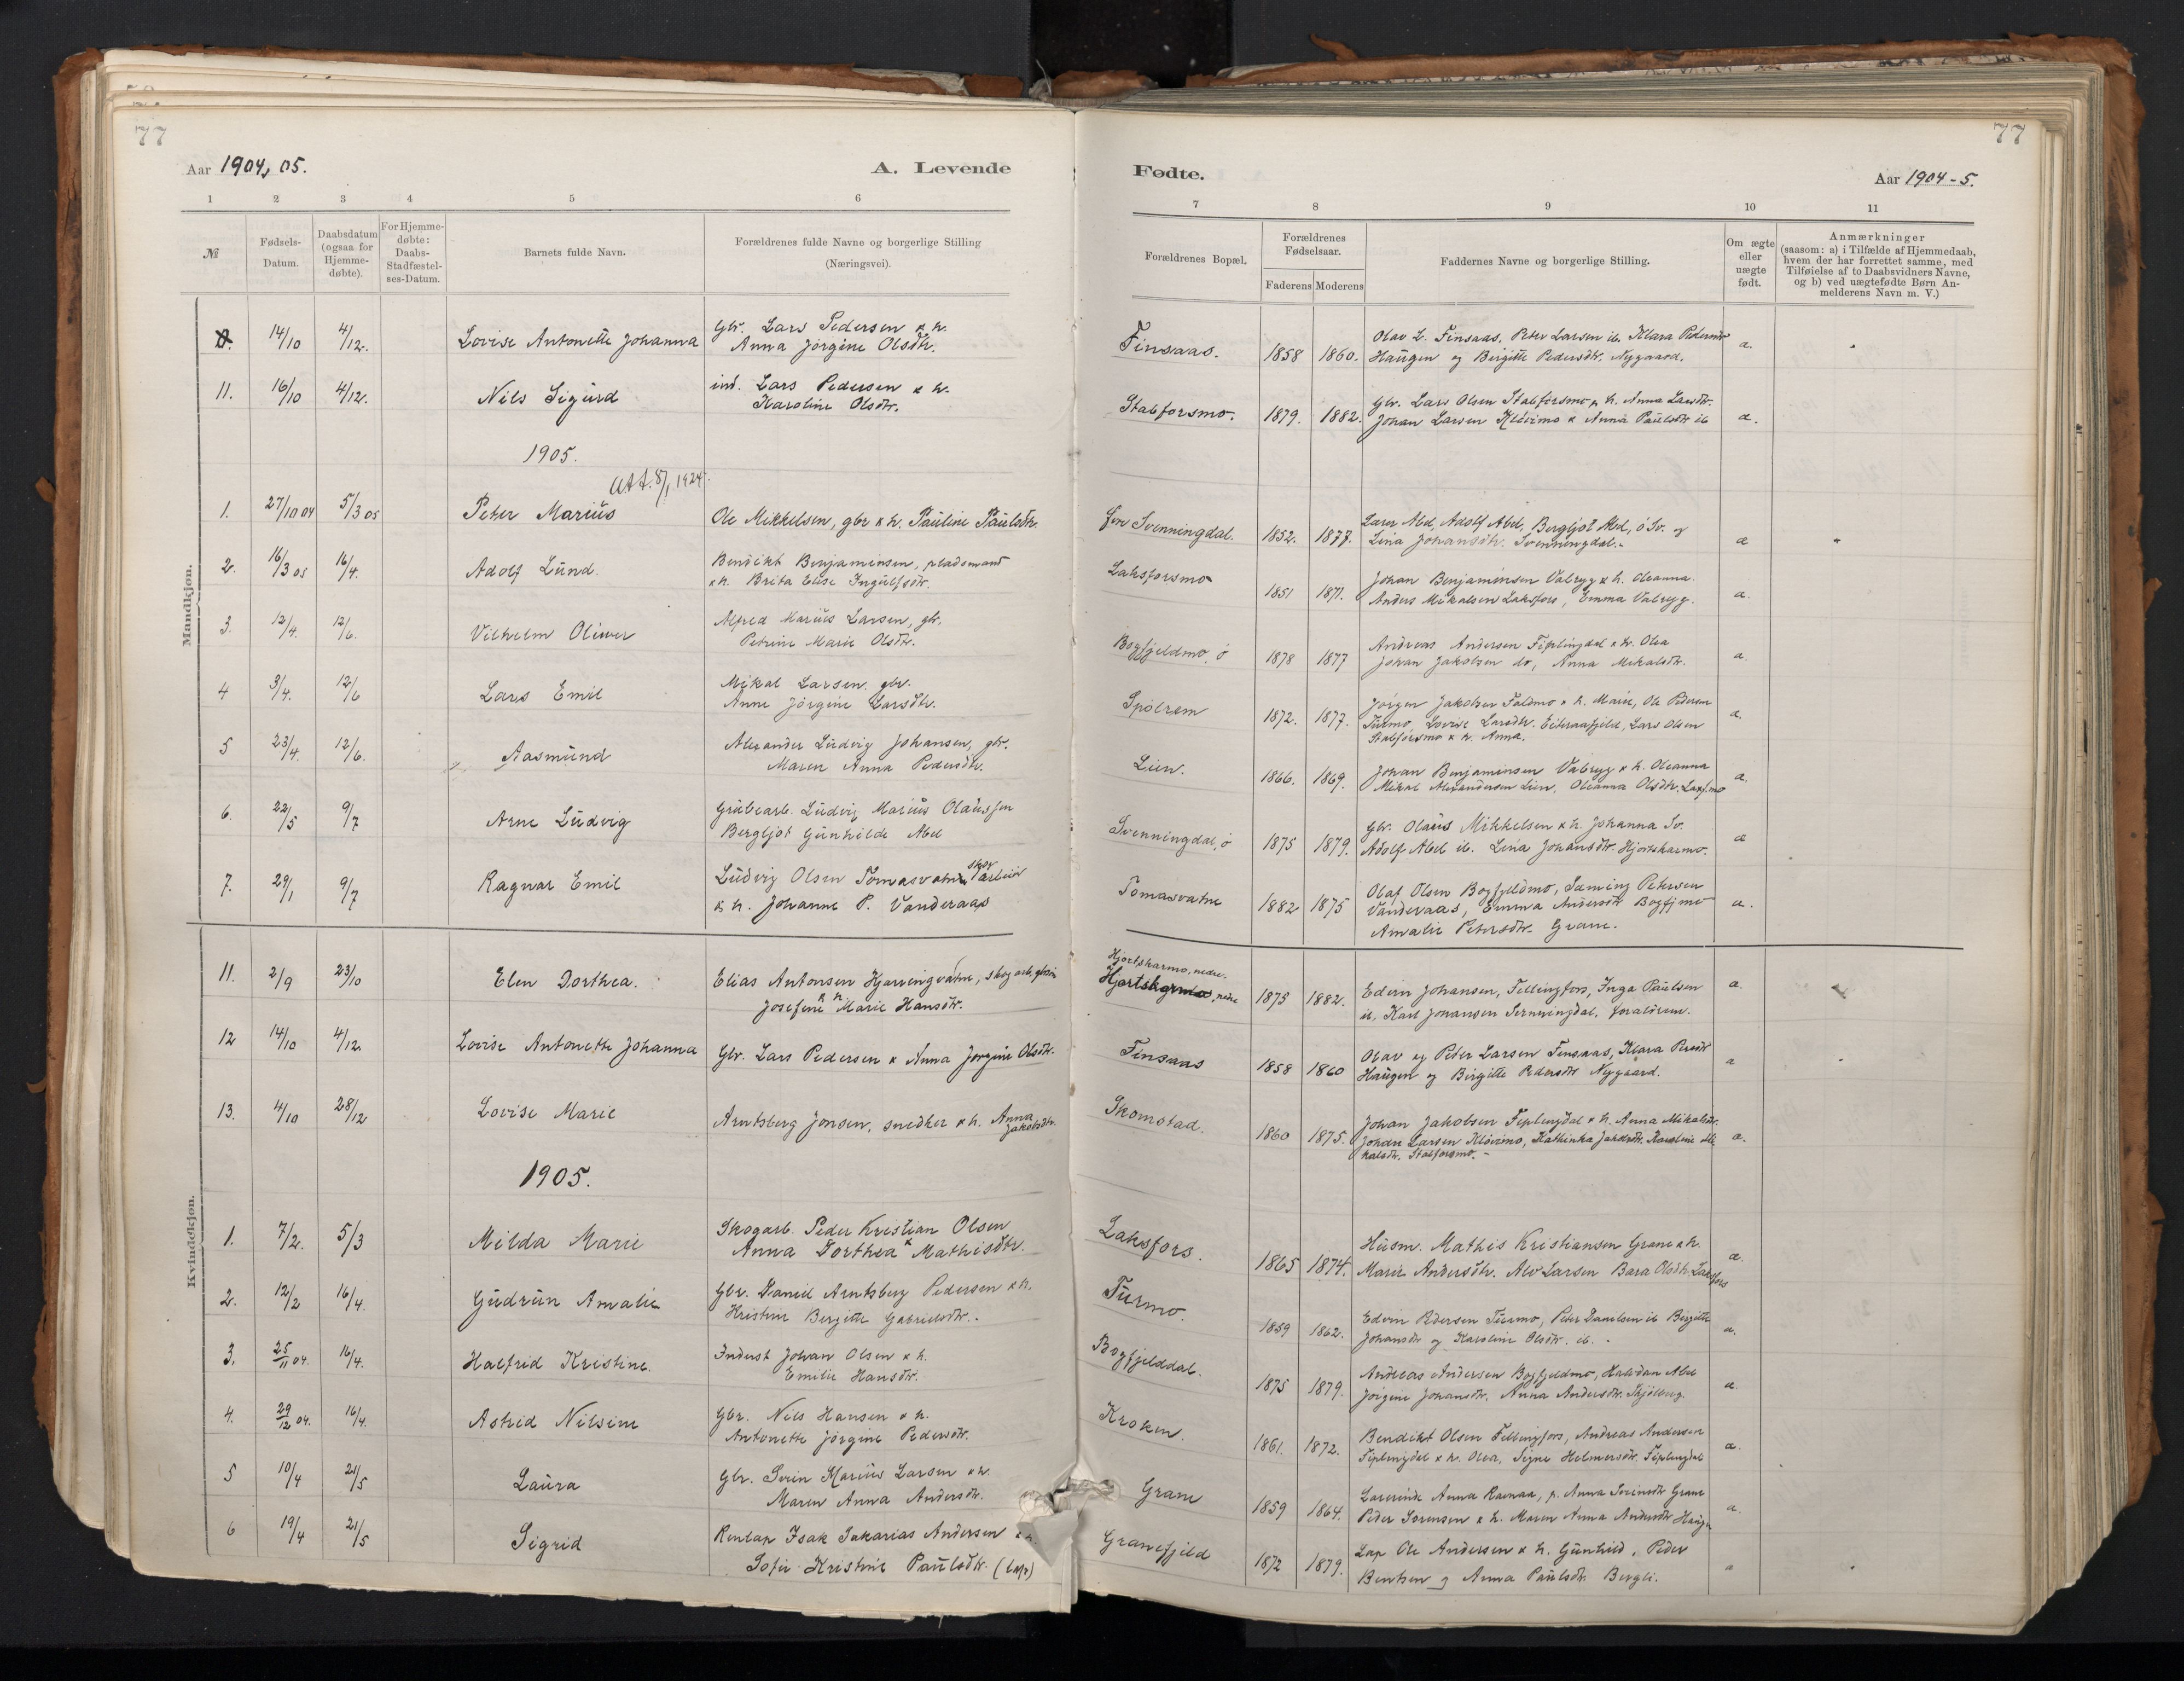 77
77
Aar 1904, 05.
A. Levende
Fødte.
Aar 1904-5.
1 2 3 4 5 6 7 8 9 10 11
№
Fødsels-Datum.
Daabsdatum (ogsaa for Hjemmedøbte).
For Hjemmedøbte: Daabs-Stadfæstelses-Datum.
Barnets fulde Navn.
Forældrenes fulde Navne og borgerlige Stilling
(Næringsvei).
Forældrenes Bopæl.
Forældrenes Fødselsaar.
Faderens Moderens
Faddernes Navne og borgerlige Stilling.
Om ægte eller uægte født.
Anmærkninger
(saasom: a) i Tilfælde af Hjemmedaab,
hvem der har forrettet samme, med
Tilføielse af to Daabsvidners Navne,
og b) ved uægtefødte Børn An-
melderens Navn m. V.)
Mandkjøn.
14/10 4/12. Lovise Antonette Johanna Gbr. Lars Pedersen & h.
Anna Jørgine Olsdtr.
Finsaas. 1858 1860. Olav L. Finsaas, Peter Larsen ib. Klara Pedersdtr
Haugen og Bergitte Pedersdtr. Nygaard. a.
11. 16/10 4/12. Nils Sigurd ind. Lars Pedersen & h.
Karoline Olsdtr.
Stabforsmo. 1879. 1882. Gbr. Lars Olsen Stabforsmo & h. Anna Larsdtr.
Johan Larsen Kløvimo & Anna Paulsdtr ib a.
1905.
Att. 8/1 1924.
1. 27/10 04 5/3 05 Peter Marius Ole Mikkelsen, gbr & h. Pauline Paulsdtr.
Svenningdal. 1852. 1877. Abel, Adolf Abel, Bergljot Abel, ö Sv. og
Lina Johansdtr. Svenningdal. a
2. 16/3 05 16/4. Adolf Lund. Bendikt Benjaminsen, pladsmand
& h. Brita Elise Ingulfsdtr.
Laksforsmo 1851 1871. Johan Benjaminsen Valryg & h. Oleanna.
Anders Mikalsen Laksfors, Emma Valryg. a.
3. 12/4. 12/6. Vilhelm Oliver Alfred Marius Larsen, gbr,
Petrine Marie Olsdtr.
Bogfjeldmo, ö 1878 1877 Andreas Andersen Fiplingdal & h. Olea
Johan Jakobsen do, Anna Mikalsdtr. a.
4 3/4. 12/6 Lars Emil Mikal Larsen gbr.
Anne Jörgine Larsdtr.
Spölrem 1872. 1877. Jørgen Jakobsen Faldmo & h. Marie, Ole Pedersen
Turmo, Lovise Larsdtr. Eiteraafjeld, Lars Olsen
Stabforsmo & h. Anna. a.
5 23/4. 12/6. Aasmund Alexander Ludvig Johansen, gbr.
Maren Anna Pedersdtr.
Lien. 1866. 1869. Johan Benjaminsen Valryg & h. Oleanna
Mikal Alexandersen Lien, Oleanna Olsdtr. Laxf.mo a.
6. 22/5 9/7 Arne Ludvig Grubearb. Ludvig Marius Olaussen
Bergljot Gunhilde Abel
Svenningdal, ö 1875 1879. Gbr. Olaus Mikkelsen & h. Johanna Sv.
Adolf Abel ib. Lina Johansdtr. Hjortskarmo. a
7. 29/1 9/7 Ragnar Emil Ludvig Olsen Tomasvatne, skogarbeid
& h. Johanne P. Vanderaas
Tomasvatne 1882 1875 Olaf Olsen Bogfjeldmo, Sæming Petersen
Vanderaas, Emma Andersdtr Bogfjmo
Amalie Petersdtr. Grane. a.
Kvindekjøn.
11. 2/9 23/10 Elen Dorthea. Elias Antonsen Hjarvingvatne, skogarb,
& h. Josefine Marie Hansdtr.
Hjortskarmo, nedre. 1875 1882. Edvin Johansen, Fellingfors, Inga Paulsen
ib, Karl Johansen Svenningdal, foraldrene. a.
12 14/10 4/12. Lovise Antonette Johanna Gbr. Lars Pedersen & Anna Jørgine Olsdtr.
Finsaas 1858 1860 Olav og Peter Larsen Finsaas, Klara Persdtr
Haugen og Birgitte Pedersdtr Nygaard. a
13. 4/10 28/12 Lovise Marie Arntsberg Jonsen, snedker & h. Anna
Jakobsdtr.
Skomstad. 1860 1875. Johan Jakobsen Fiplingdal & h. Anna Mikalsdtr.
Johan Larsen Kløvimo, Kathinka Jakobsdtr. Karoline Mi-
kalsdtr. Stabforsmo. - a.
1905.
1. 7/2. 5/3 Milda Marie Skogarb. Peder Kristian Olsen
& Anna Dorthea Mathisdtr.
Laksfors. 1865 1874. Husm. Mathis Kristiansen Grane & h.
Marie Andersdtr. Alv Larsen Bara Olsdtr. Laksfors a.
2. 12/2 16/4. Gudrun Amalie Gbr. Daniel Arntsberg Pedersen & h.
Kristine Bergitte Gabrielsdtr.
Turmo. 1859 1862. Edvin Pedersen Turmo, Peter Danielsen ib Bergitte
Johansdtr og Karoline Olsdtr. ib. a.
3. 25/11 04. 16/4. Halfrid Kristine. Inderst Johan Olsen & h.
Emilie Hansdtr.
Bogfjelddal. 1875 1879. Andreas Andersen Bogfjeldmo, Halvdan Abel
Jørgine Johansdtr, Anna Andersdtr. a.
4. 29/12 04. 16/4. Astrid Nilsine Gbr. Nils Hansen & h.
Antonette Jørgine Pedersdtr.
Kroken. 1861. 1872. Bendikt Olsen Fellingfors, Andreas Andersen
Fiplingdal & h. Olea, Signe Helmersdtr. Fiplingdal a.
5 10/4 21/5 Laura Gbr. Svein Marius Larsen & h.
Maren Anna Andersdtr.
Grane 1859 1864. Lærerinde Anna Ravnaa, p. Anna Sveinsdtr Grane
Peder Sørensen & h. Maren Anna Andersdtr Haugen a.
6 19/4 21/5 Sigrid Renlap Isak Sakarias Andersen & h.
Sofie Kristine Paulsdtr. (lap)
Granefjeld 1872 1879. Lap Ole Andersen & h. Gunhild, Peder
Bentsen og Anna Paulsdtr. Bergli. a